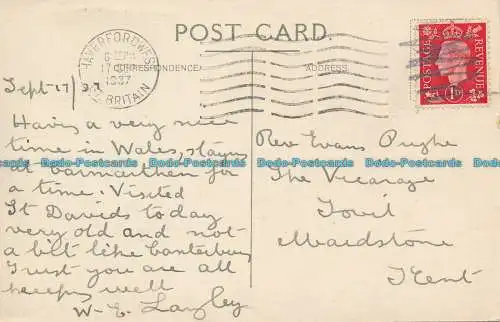 POST CARD.
HAVERFORDWEST
17
1937
GT. BRITAIN
CORRESPONDENCE
ADDRESS
POSTAGE
REVENUE
1D
Sept 17/37
Having a very nice
time in Wales, staying
at Carmarthen for
a time. Visited
St Davids to day
very old and not
a bit like Canterbury
Trust you are all
keeping well
W. E. Langley
Rev Evans Pughe
The Vicarage
Tovil
Maidstone
Kent
Dodo-Postcards Dodo-Postcards Dodo-Postcards Dodo-Postcards Dodo-Postcards